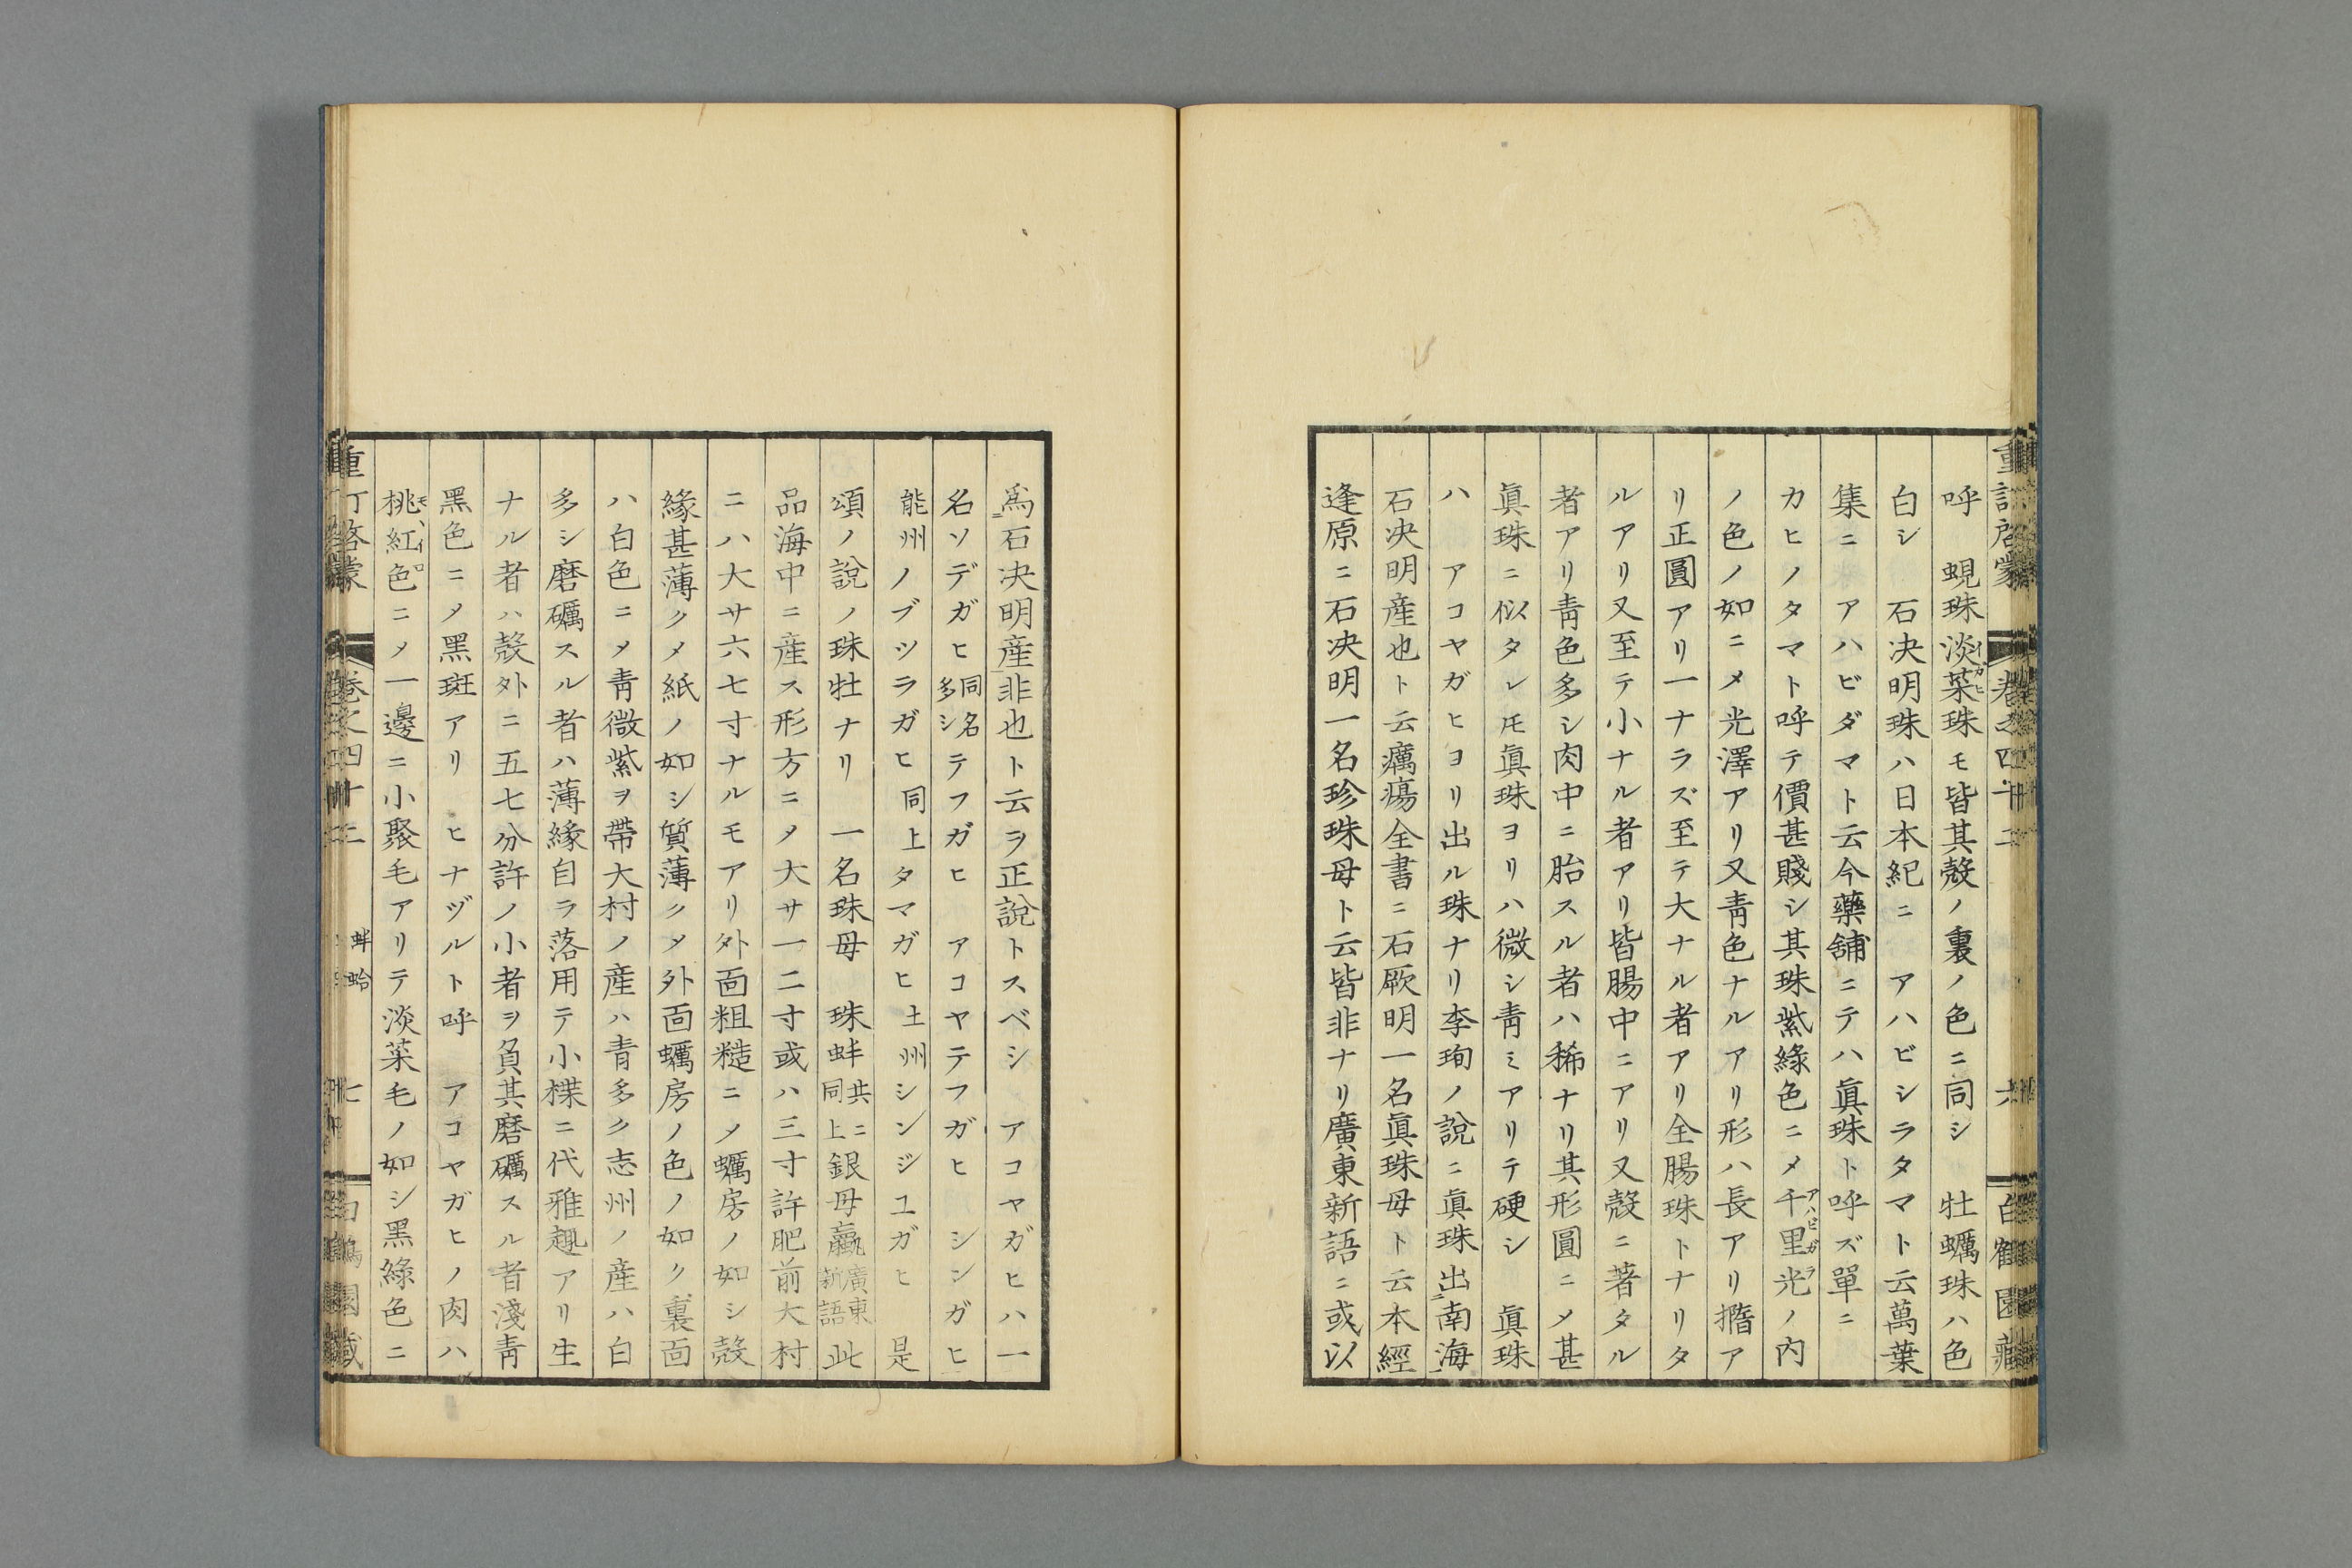 重訂啓蒙 巻之四十二 六 白鶴園藏
呼 蜆珠淡菜珠モ皆其殼ノ裏ノ色ニ同シ 牡蠣珠ハ色
白シ 石决明珠ハ日本紀ニ アハビシラタマト云萬葉
集ニ アハビダマト云今藥舖ニテハ眞珠ト呼ズ單ニ
カヒノタマト呼テ價甚賤シ其珠紫綠色ニメ千里光ノ内
アハビガラ
ノ色ノ如ニメ光澤アリ又靑色ナルアリ形ハ長アリ撱ア
リ正圓アリ一ナラズ至テ大ナル者アリ全腸珠トナリタ
ルアリ又至テ小ナル者アリ皆腸中ニアリ又殼ニ著タル
者アリ靑色多シ肉中ニ胎スル者ハ稀ナリ其形圓ニメ甚
眞珠ニ似タレ𪜈眞珠ヨリハ微シ靑ミアリテ硬シ 眞珠
ハ アコヤガヒヨリ出ル珠ナリ李珣ノ說ニ眞珠出南海
石决明産也ト云癘瘍全書ニ石厥明一名眞珠母ト云本經
逢原ニ石决明一名珍珠母ト云皆非ナリ廣東新語ニ或以
爲石决明産非也ト云ヲ正說トスベシ アコヤガヒハ一
名ソデガヒ同名多シテフガヒ アコヤテフガヒ シンガヒ
能州ノブツラガヒ同上タマガヒ土州シンジユガヒ 是
頌ノ說ノ珠牡ナリ 一名珠母 珠蚌共ニ同上銀母蠃廣東新語此
品海中ニ産ス形方ニメ大サ一二寸或ハ三寸許肥前大村
ニハ大サ六七寸ナルモアリ外面粗糙ニメ蠣房ノ如シ殼
緣甚薄クメ紙ノ如シ質薄クメ外面蠣房ノ色ノ如ク裏面
ハ白色ニメ靑微紫ヲ帶大村ノ産ハ青多ク志州ノ産ハ白
多シ磨礪スル者ハ薄緣自ラ落用テ小楪ニ代雅趣アリ生
ナル者ハ殼外ニ五七分許ノ小者ヲ負其磨礪スル者淺靑
黑色ニメ黑斑アリ ヒナヅルト呼 アコヤガヒノ肉ハ
桃紅色ニメ一邊ニ小聚毛アリテ淡菜毛ノ如シ黑綠色ニ
モヽイロ
重訂啓蒙 巻之四十二 蚌蛤 七